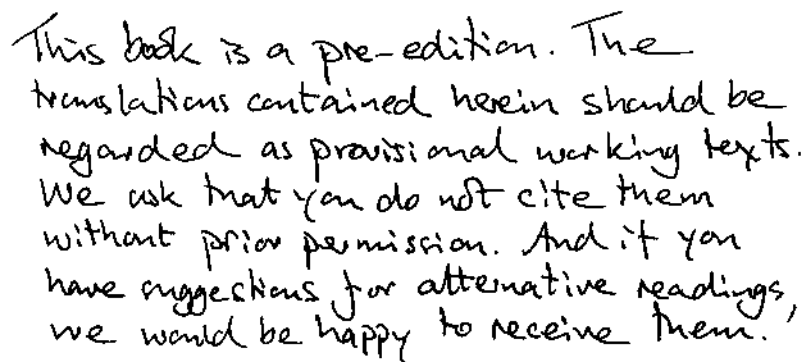 This book is a pre-edition. The
translations contained herein should be
regarded as provisional working texts.
We ask that you do not cite them
without prior permission. And if you
have suggestions for alternative readings,
we would be happy to receive them.